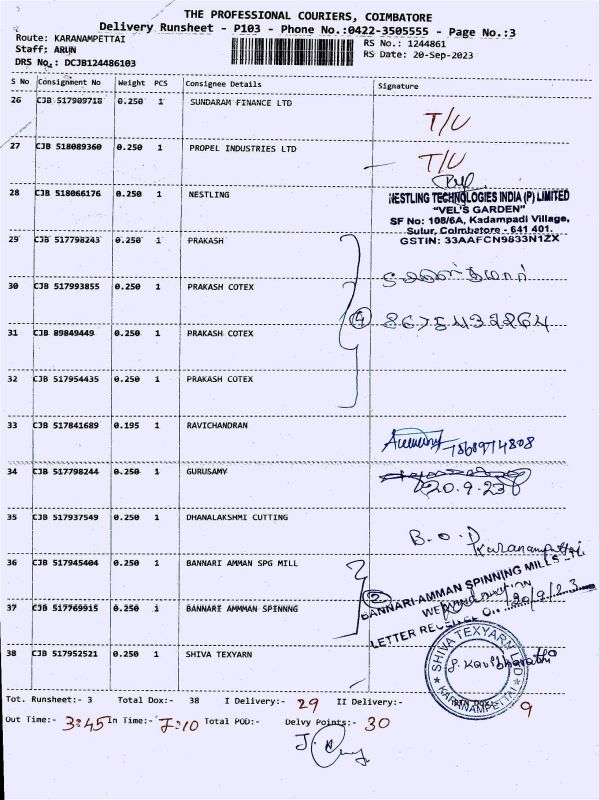 THE PROFESSIONAL COURIERS, COIMBATORE
Delivery Runsheet - P103 - Phone No.:0422-3505555 - Page No.:3
Route: KARANAMPETTAI
RS No.: 1244861
Staff: ARUN
RS Date: 20-Sep-2023
DRS No.: DCJB124486103
S No Consignment No Weight PCS Consignee Details Signature
26 CJB 517909718 0.250 1 SUNDARAM FINANCE LTD T/U
27 CJB 518089360 0.250 1 PROPEL INDUSTRIES LTD T/U
28 CJB 518066176 0.250 1 NESTLING
NESTLING TECHNOLOGIES INDIA (P) LIMITED
"VEL'S GARDEN"
SF No: 108/6A, Kadampadi Village,
Sulur, Coimbatore - 641 401.
GSTIN: 33AAFCN9833N1ZX
29 CJB 517798243 0.250 1 PRAKASH
30 CJB 517993855 0.250 1 PRAKASH COTEX
31 CJB 89849449 0.250 1 PRAKASH COTEX 4 8675432264
32 CJB 517954435 0.250 1 PRAKASH COTEX
33 CJB 517841689 0.195 1 RAVICHANDRAN
34 CJB 517798244 0.250 1 GURUSAMY
20.9.23
35 CJB 517937549 0.250 1 DHANALAKSHMI CUTTING
B.O.P
Karanampettai
36 CJB 517945404 0.250 1 BANNARI AMMAN SPG MILL
2
BANNARI AMMAN SPINNING MILLS LTD
20/9/23
37 CJB 517769915 0.250 1 BANNARI AMMMAN SPINNNG
LETTER
38 CJB 517952521 0.250 1 SHIVA TEXYARN
SHIVA TEXYARN LTD
KARANAMPETTAI
Tot. Runsheet:- 3 Total Dox:- 38 I Delivery:- 29 II Delivery:- 9
Out Time:- 3:45 In Time:- 7:10 Total POD:- Delvy Points:- 30